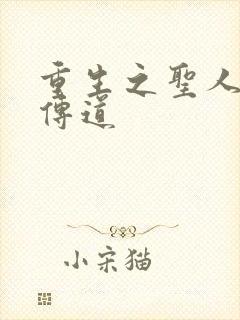 重生之聖人
傳道
小宋猫